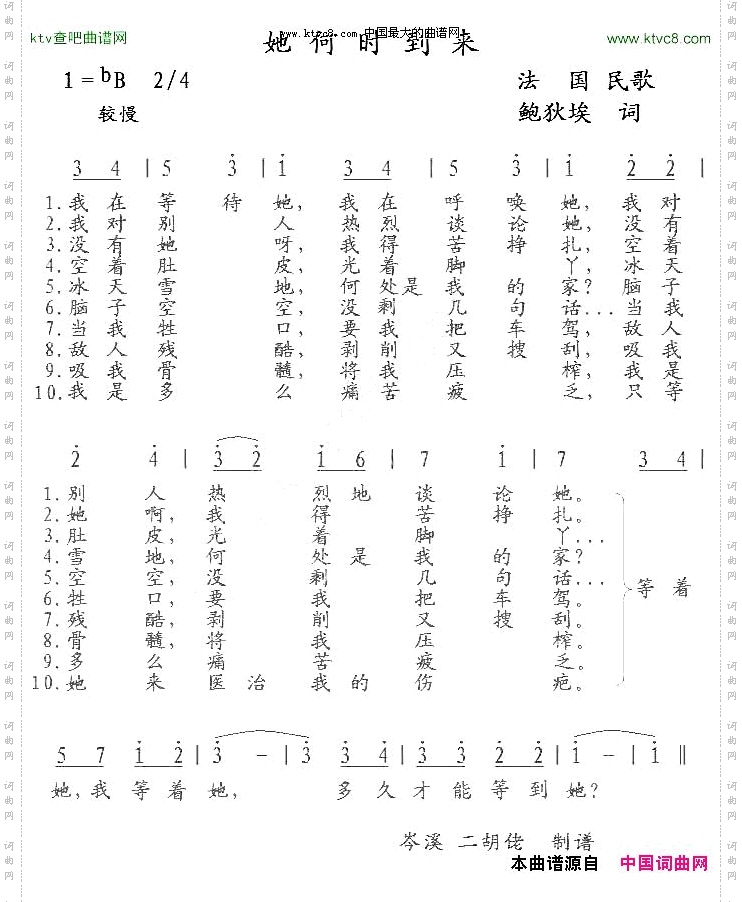 www.ktvc8.com 中国最大的曲谱网
ktv查吧曲谱网
她何时到来
www.ktvc8.com
1=ᵇB 2/4
法 国 民歌
较慢
鲍狄埃 词
3 4 | 5 3 | 1 3 4 | 5 3 | 1 2 2 |
1.我在等待她，我在呼唤她，我对
2.我对别人热烈谈论她，没有
3.没有她呀，我得苦挣扎，空着
4.空着肚皮，光着脚丫，冰天
5.冰天雪地，何处是我的家？脑子
6.脑子空空，没剩几句话...当我
7.当我牲口，要我把车驾，敌人
8.敌人残酷，剥削又搜刮，吸我
9.吸我骨髓，将我压榨，我是
10.我是多么痛苦疲乏，只等
2 4 | 3 2 1 6 | 7 1 | 7 3 4 |
1.别人热烈地谈论她。
2.她啊，我得苦挣扎。
3.肚皮，光着脚丫...
4.雪地，何处是我的家？
5.空空，没剩几句话...
6.牲口，要我把车驾。
7.残酷，剥削又搜刮。
8.骨髓，将我压榨。
9.多么痛苦疲乏。
10.她来医治我的伤疤。
等着
5 7 1 2 | 3 - | 3 3 4 | 3 3 2 2 | 1 - | 1 ‖
她，我等着她，多久才能等到她？
岑溪 二胡佬 制谱
本曲谱源自 中国词曲网